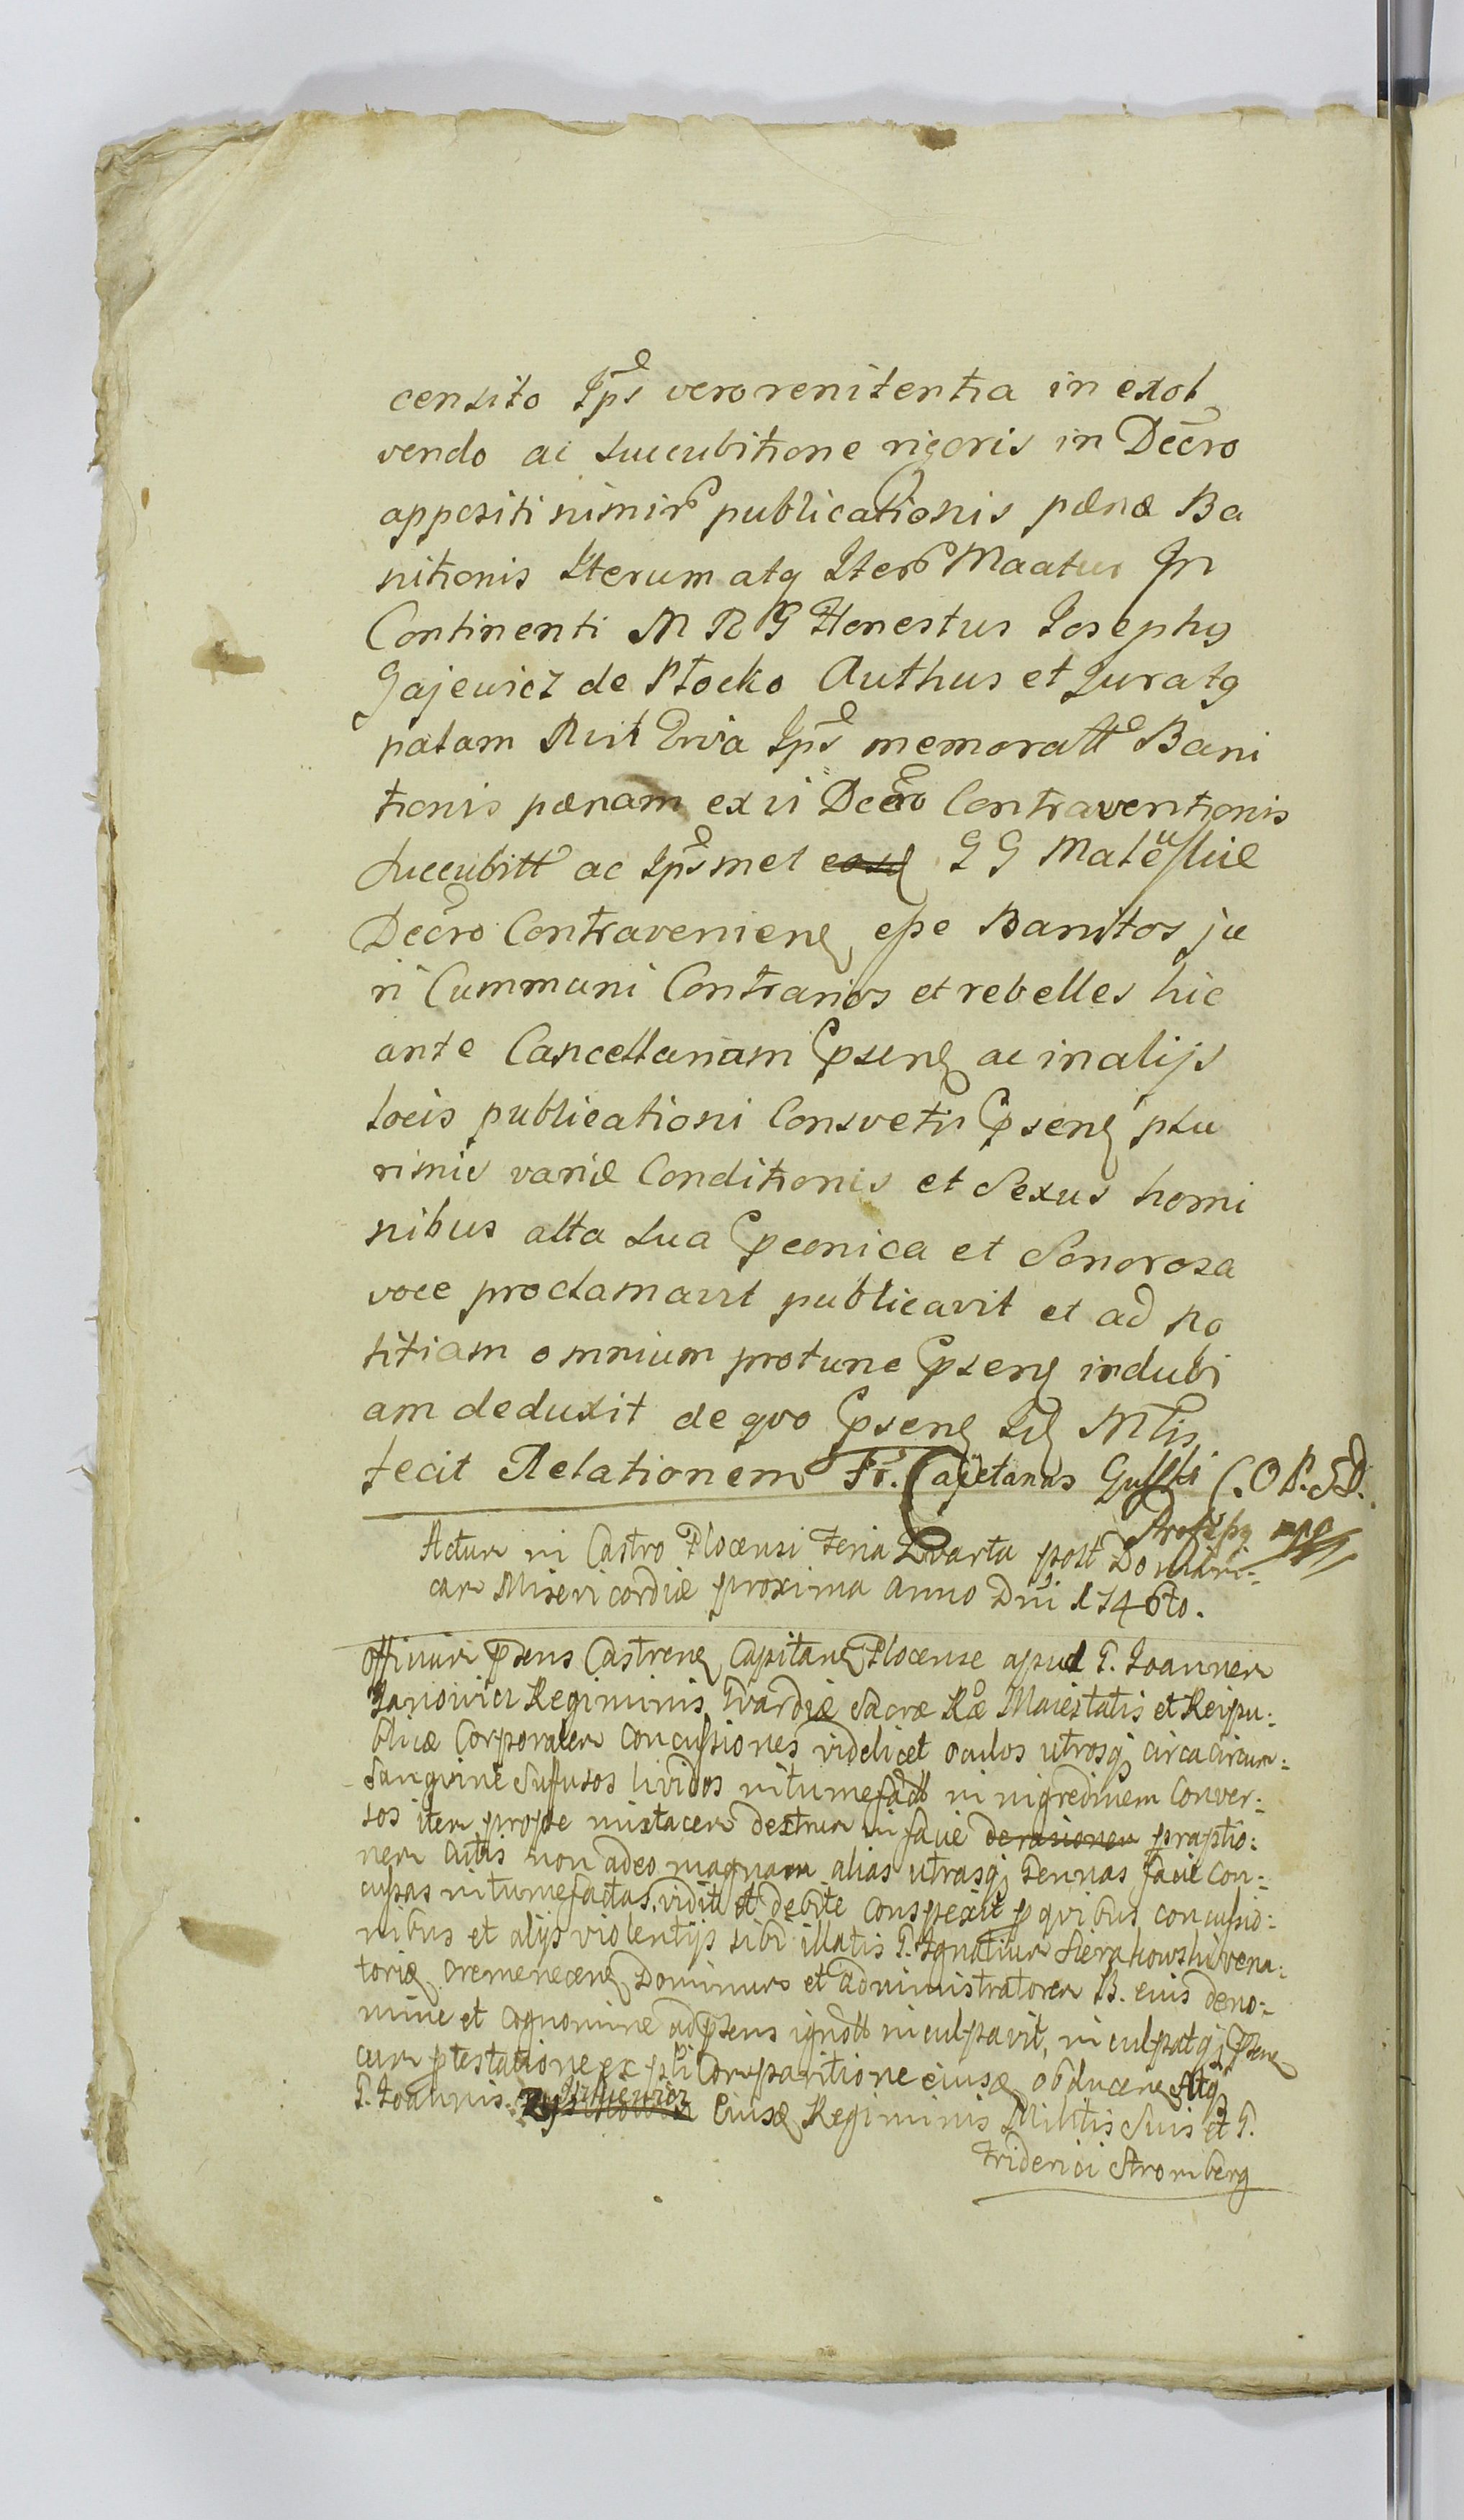 censito Ips vero renitentia in exol
vendo ac succubitione rigoris in Decro
appositi nimir publicationis pænæ Ba
nitionis Iterum atq Iter Maatur In
Continenti M R G Honestus Iosephg
Gajewicz de Płocko Authus et Juratg
palam Rist Ips memoratt Bani
tionis pænam ex vi Decro Contraventionis
Succubitt ac Ips met G G
Decro Contravenienę eße Banitos ju
ri Cummuni Contrarios et rebelles hic
ante Cancellariam psenę ac in alijs
locis publicationi Consvetis psenę plu
rimis variæ Conditionis et Sexus homi
nibus alta sua pconica et Sonorosa
voce proclamavit publicavit et ad no
titiam omnium protunc psenę indubi
am deduxit de qvo psenę Mtis
fecit Relationem Fr. Cajetanus C. O P. S D.
mpa
Actum in Castro Plocensi Feria Qvarta post Domini-
cam Misericordiæ proxima Anno Dni 1746to.
Officium psens Castrenę Capitanę Plocense apud G. Ioannem
Regiminis Gvardiæ Sacræ Ræ Maiestatis et Reipu:
blicæ Corporalem concußiones videlicet oculos utrosq circa circum:
Sangvine Suffusos lividos intumefactt in nigredinem Conver:
sos item prope mistacem dextrum in facie derasionem praptio:
nem Cutis non adeo magnam alias utrasq gennas facie Con:
cußas intumefactas, vidit et debite conspexit p qvibus concußio:
nibus et alijs violentijs sibi illatis G. Ignatium Sierakowski vena:
toriæ Cremenecenę Dominum et administratorem B. eius deno:
mine et cognomine ad psens ignott inculpavit, inculpatq psene
cum ptestatione ex pti Comparitione eiusę obducenę Atq
G. Ioannis Eiusę Regiminis Militis Suis et G.
Friderici Stromberg